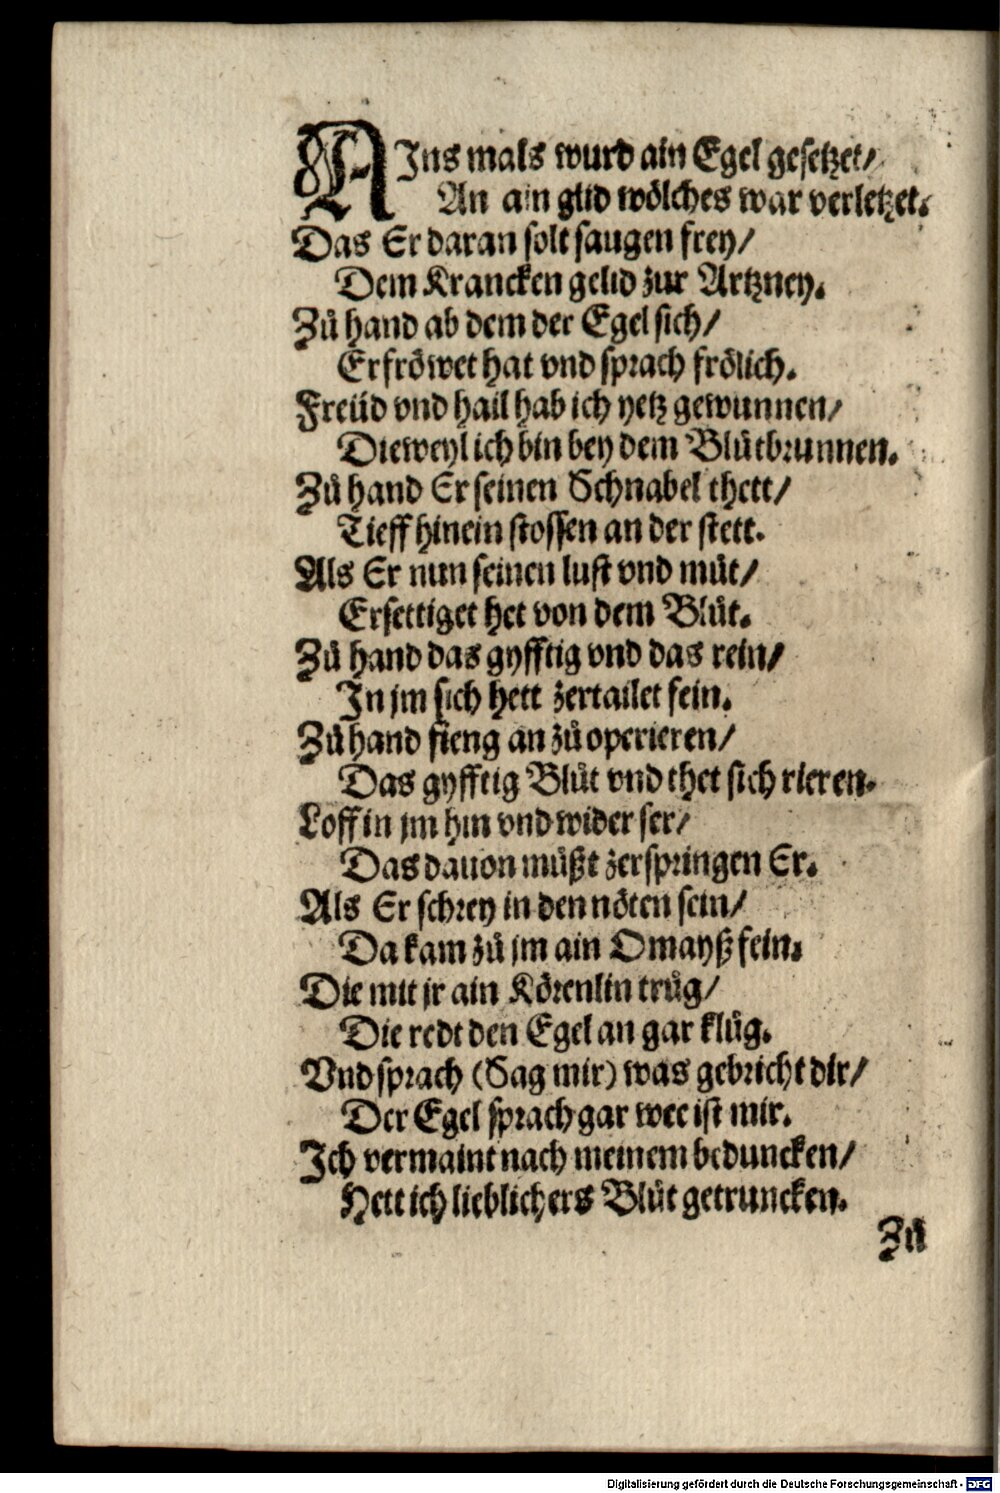 AJns mals wurd ain Egel gesetzet/
An ain glid wölches war verletzet.
Das Er daran solt saugen frey/
Dem Krancken gelid zur Artzney.
Zů hand ab dem der Egel sich/
Erfröwet hat vnd sprach frölich.
Freüd vnd hail hab ich yetz gewunnen/
Dieweyl ich bin bey dem Blůtbrunnen.
Zů hand Er seinen Schnabel thett/
Tieff hinein stossen an der stett.
Als Er nun seinen lust vnd můt/
Ersettiget het von dem Blůt.
Zů hand das gyfftig vnd das rein/
In jm sich hett zertailet fein.
Zů hand fieng an zů operieren/
Das gyfftig Blůt vnd thet sich rieren.
Loff in jm hin vnd wider ser/
Das dauon můßt zerspringen Er.
Als Er schrey in den nöten sein/
Da kam zů jm ain Omayß fein.
Die mit jr ain Körenlin trůg/
Die redt den Egel an gar klůg.
Vnd sprach (Sag mir) was gebricht dir/
Der Egel sprach gar wee ist mir.
Ich vermaint nach meinem beduncken/
Hett ich lieblichers Blůt getruncken.
Zů
Digitalisierung gefördert durch die Deutsche Forschungsgemeinschaft - DFG